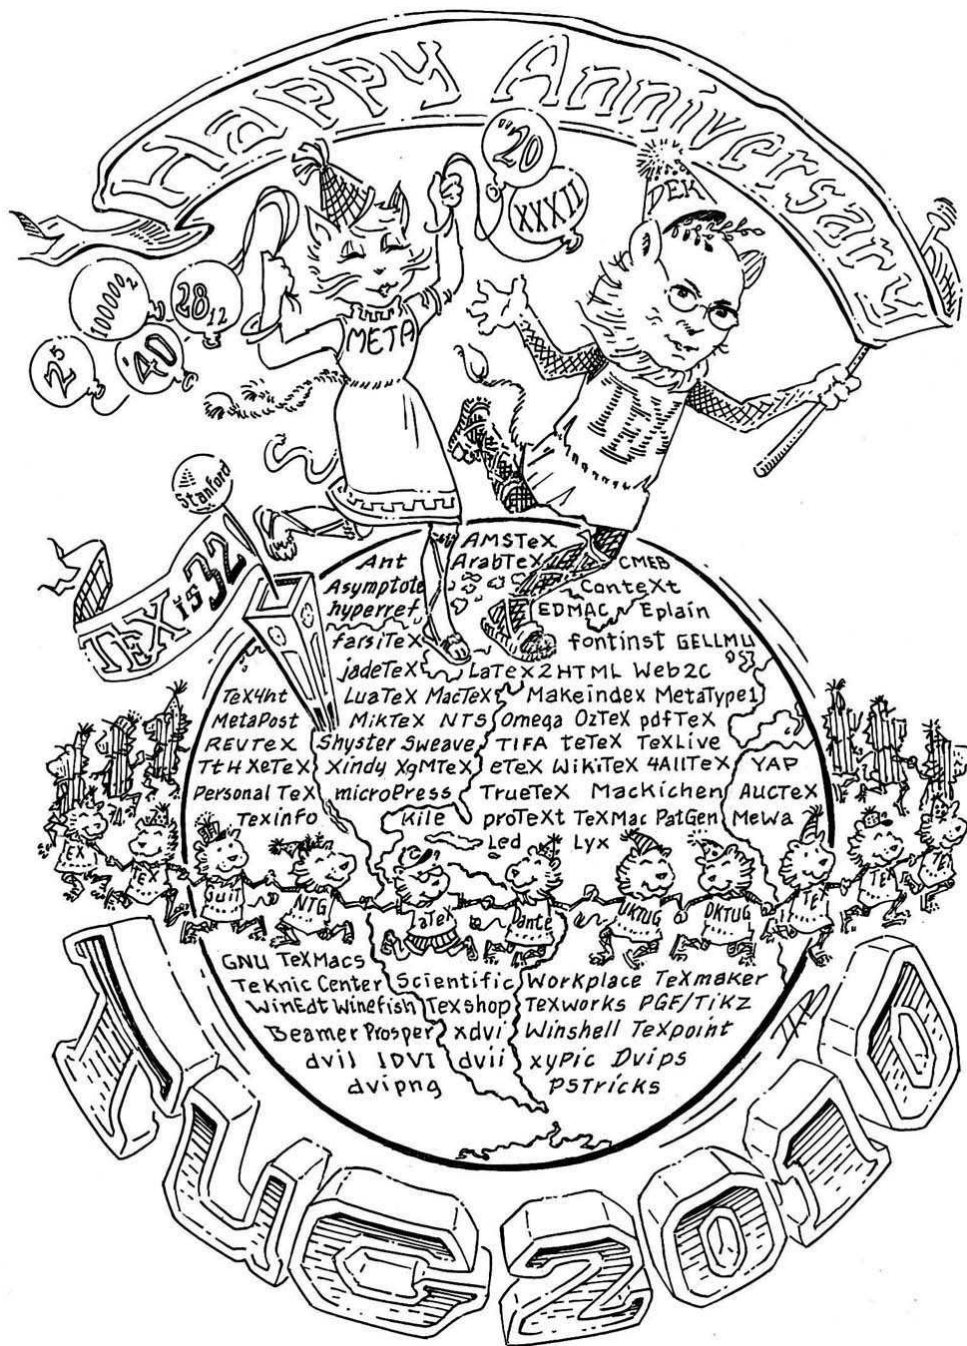 Happy Anniversary
"20
XXXII
DEK
100000₂
28₁₂
2⁵
'40
META
TEX
Stanford
TEX is 32
AMSTeX
Ant ArabTeX CMEB
Asymptote ConTeXt
hyperref EDMAC Eplain
farsiTeX fontinst GELLMU
jadeTeX LaTeX2HTML Web2C
TeX4ht LuaTeX MacTeX Makeindex MetaType1
MetaPost MikTeX NTS Omega OzTeX pdfTeX
REVTeX Shyster Sweave TIFA teTeX TeXLive
TtH XeTeX Xindy XgMTeX eTeX WikiTeX 4AllTeX YAP
Personal TeX microPress TrueTeX MacKichen AucTeX
Texinfo Kile proTeXt TeXMac PatGen MeWa
Led Lyx
EX TEX Guit NTG aTeX Dante UKTUG DKTUG TE TEX TE
GNU TeXMacs
TeKnic Center Scientific Workplace TeXmaker
WinEdt Winefish Texshop TeXworks PGF/TiKZ
Beamer Prosper xdvi Winshell TeXpoint
dvil IDVI dvii xyPic Dvips
dvipng PSTricks
TUG 2010